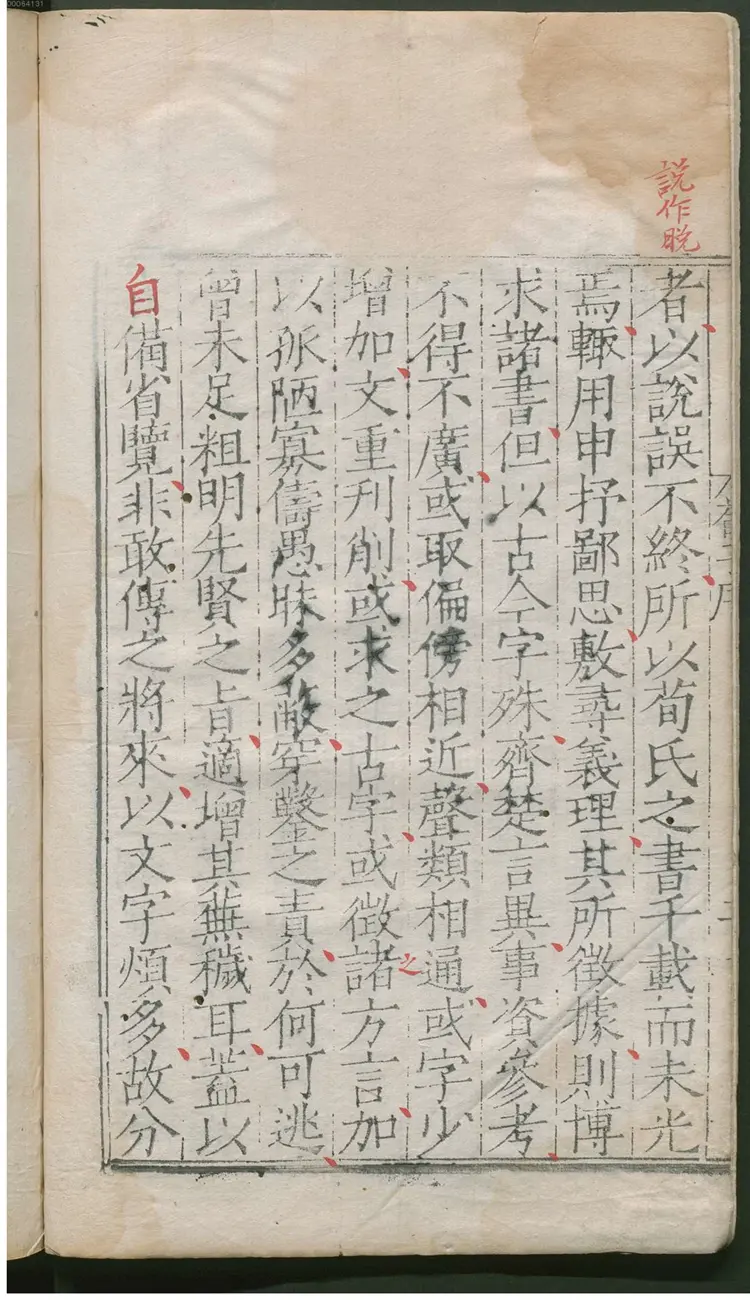 00064131
説作晚
者以說誤不終所以荀氏之書千載而未光
焉輙用申抒鄙思敷尋義理其所徵據則博
求諸書但以古今字殊齊楚言異事資參考
不得不廣或取偏傍相近聲類相通或字少
增加文重刊削或求之古字或徵諸
之
方言加
以孤陋寡儔愚昧多蔽穿鑿之責於何可逃
曾未足粗明先賢之旨適增其蕪穢耳蓋以
自備省覽非敢傳之將來以文字煩多故分